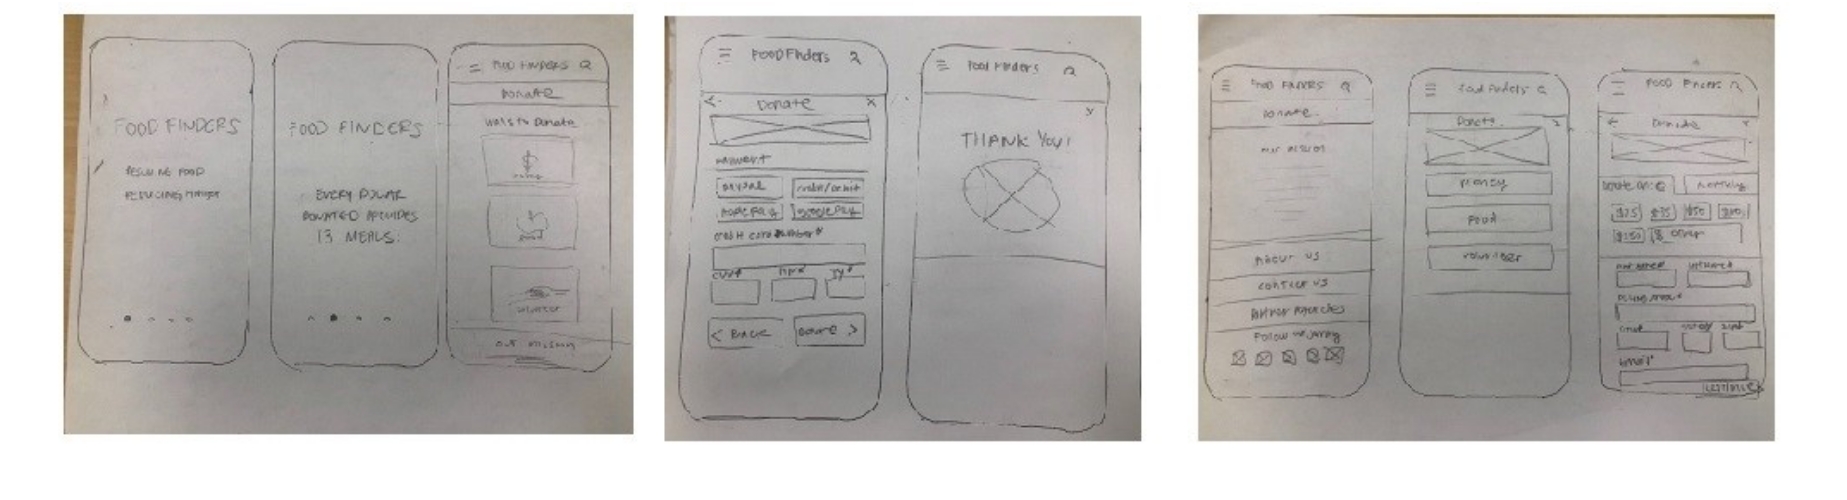 FOOD FINDERS
RESCUING FOOD
REDUCING HUNGER
FOOD FINDERS
EVERY DOLLAR
DONATED PROVIDES
13 MEALS.
FOOD FINDERS
DONATE
WAYS TO DONATE
$
FOOD
OUR MISSION
FOOD FINDERS
DONATE X
PAYMENT
PAYPAL
APPLE PAY GOOGLE PAY
CREDIT CARD NUMBER*
CVV*
< BACK DONATE >
FOOD FINDERS
X
THANK YOU!
FOOD FINDERS
DONATE
OUR MISSION
ABOUT US
CONTACT US
PARTNER AGENCIES
FOOD FINDERS
DONATE
MONEY
FOOD
VOLUNTEER
FOOD FINDERS
DONATE
DONATE ONCE MONTHLY
$25 $35 $50 $100
$250 $ OTHER
EMAIL*
CONTINUE